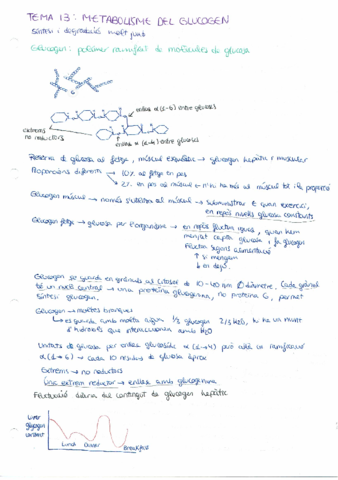 TEMA 13: METABOLISME DEL GLUCOGEN
Síntesi i degradació molt junt
Glucogen: polímer ramificat de molècules de glucosa
enllaç α(1-6) entre glucoses
extrems
no reductors
enllaç α(1-4) entre glucoses
Reserva de glucosa al fetge, múscul esquelètic → glucogen hepàtic i muscular
Proporcions diferents → 10% al fetge en pes
2% en pes al múscul
Glucogen múscul → només s'utilitza al múscul → subministrar E quan exercici,
en repòs nivells glucosa constants
Glucogen fetge → glucosa per l'organisme → en repòs fluctua igual, quan hem
menjat capta glucosa i fa glucogen
Fluctua segons alimentació
↑ si mengem
↓ en dejú.
Glucogen se guarda en grànuls al citosol de 10-40 nm diàmetre. Cada grànul
té un nucli central → una proteïna glucogenina, no proteïna G, permet
síntesi glucogen.
Glucogen → molètes branques
es guarda amb molta aigua 1/3 glucogen 2/3 H₂O, hi ha un munt
d'hidroxils que interaccionen amb H₂O
Unitats de glucosa per enllaç glucosídic α(1→4) però allà on ramificació
α(1→6) → cada 10 residus de glucosa aprox
Extrems → no reductors
Un extrem reductor → enllaça amb glucogenina
Fluctuació diürna del contingut de glucogen hepàtic
Liver
glycogen
content
Lunch Dinner
Breakfast